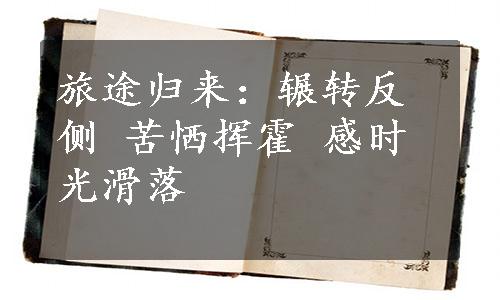 旅途归来：辗转反
侧 苦恓挥霍 感时
光滑落